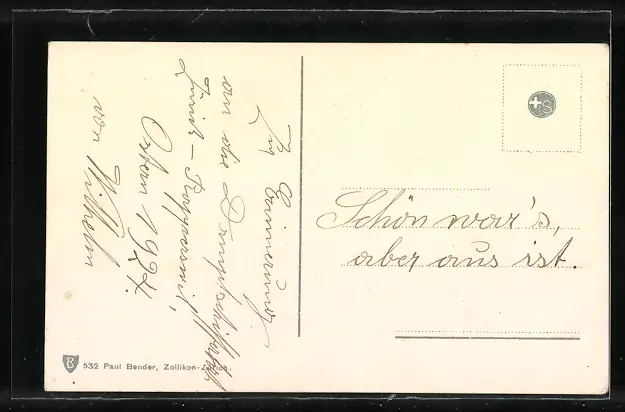 Zur Erinnerung
an die Dampfschiffahrt
Zürich – Rapperswil,
Ostern 1924.
von Wilhelm
Schön war's,
aber aus ist.
S
B
532 Paul Bender, Zollikon-Zürich.